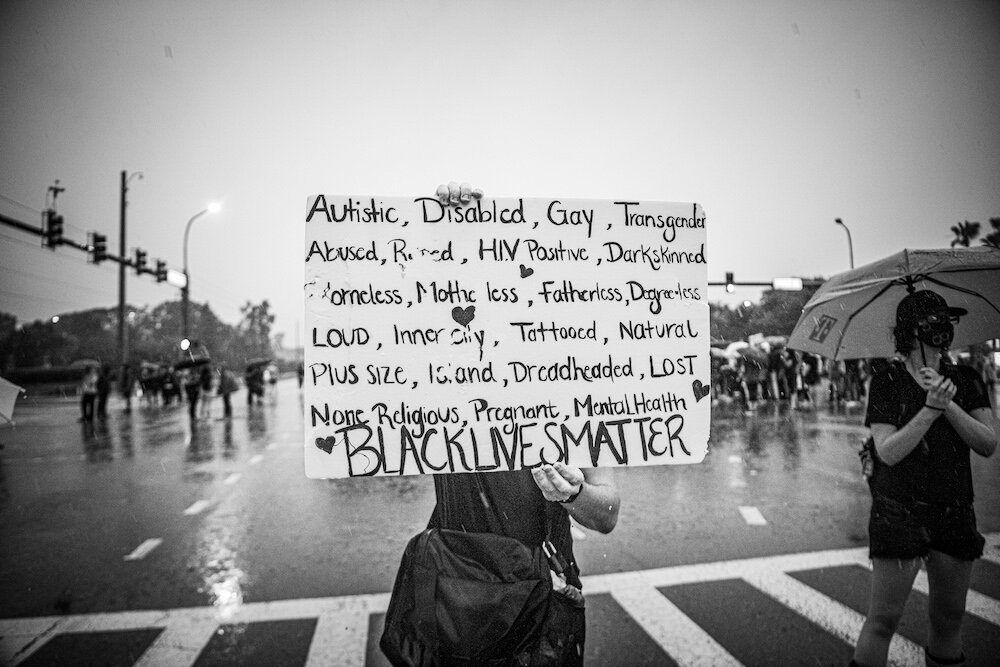 Autistic, Disabled, Gay, Transgender
Abused, HIV Positive, Darkskinned
Homeless, Motherless, Fatherless, Degree-less
LOUD, Inner city, Tattooed, Natural
Plus size, Island, Dreadheaded, LOST
None Religious, Pregnant, Mental Health
BLACKLIVESMATTER